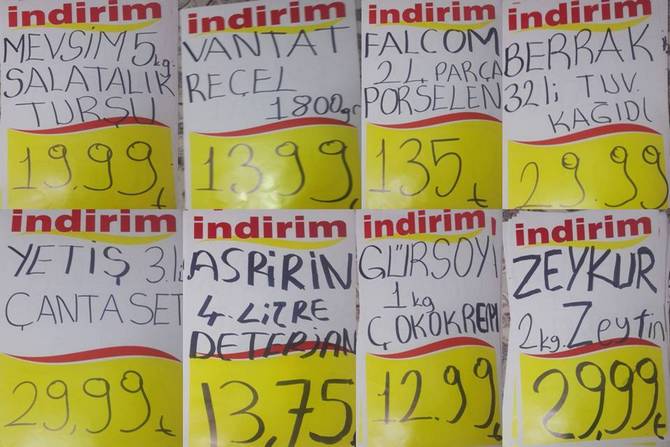 indirim
MEVSİM 5 kg.
SALATALIK
TURŞU
19.99 t
indirim
VANTAT
REÇEL
1800gr
13.99
indirim
FALCOM
24 PARÇA
PORSELEN
135 t
indirim
BERRAK
32 li TUV.
KAĞIDI
29.99
indirim
YETİŞ 3.lü
ÇANTA SET
29,99 t
indirim
ASPİRİN
4 LİTRE
DETERJAN
13,75 t
indirim
GÜRSOY
1 kg
ÇOKOKREM
12.99 t
indirim
ZEYKUR
2 kg. Zeytin
29,99 t